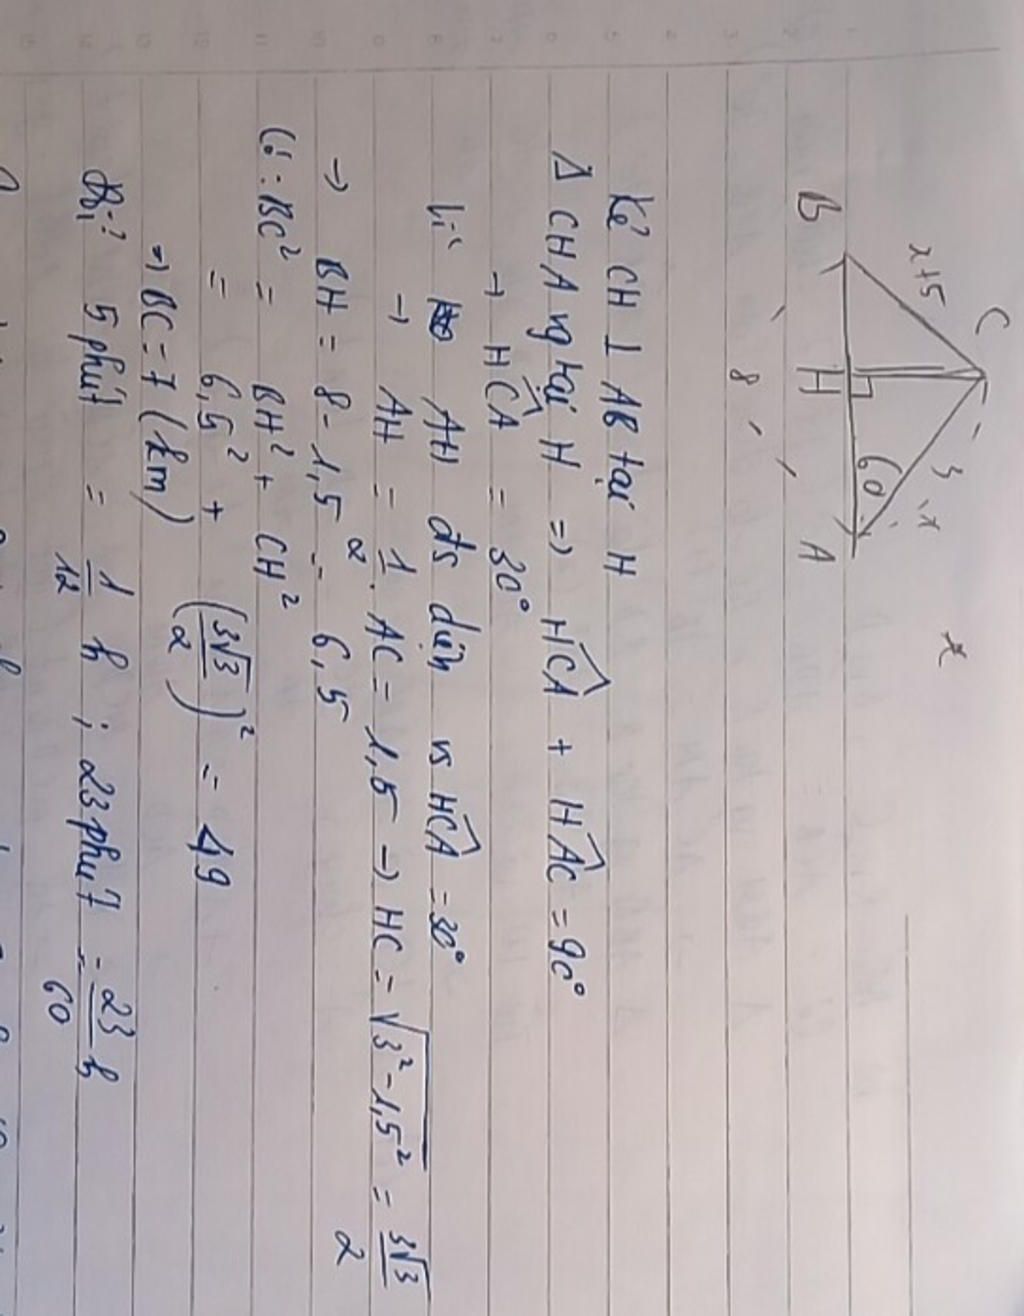 C
x+5
3
x
x
60
B
H
A
8
Kẻ CH ⊥ AB tại H
Δ CHA vg tại H => HCA + HAC = 90°
→ HCA = 30°
Vì AH đs diện vs HCA = 30°
→ AH = 1/2 . AC = 1,5 → HC = √(3² - 1,5²) = 3√3/2
→ BH = 8 - 1,5 = 6,5
Có : BC² = BH² + CH²
= 6,5² + (3√3/2)² = 49
→ BC = 7 (km)
Đổi: 5 phút = 1/12 h ; 23 phút = 23/60 h